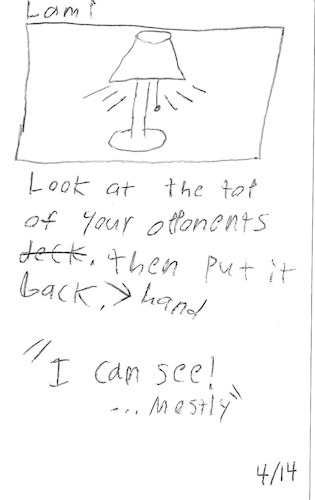 Lamp
Look at the top
of your opponents
deck. then put it
back. > hand
"I can see!
... Mostly"
4/14